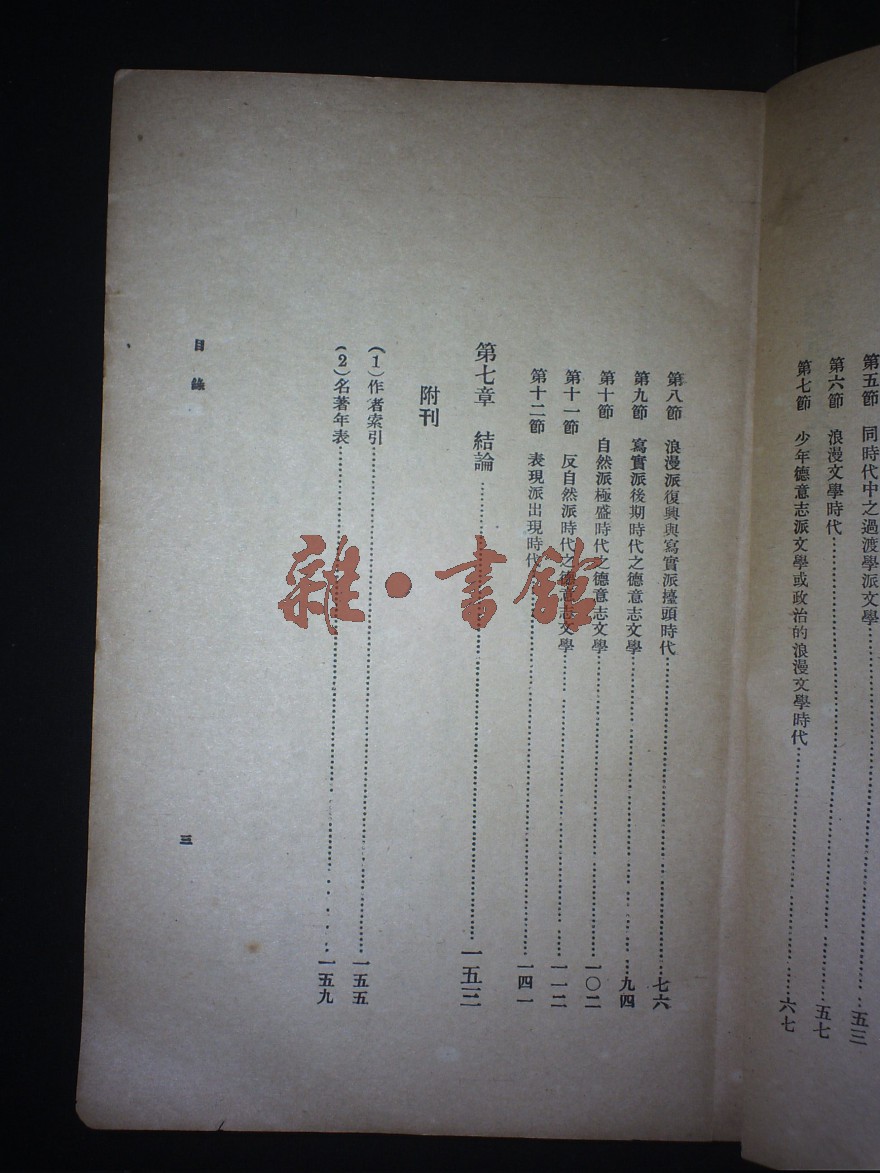 第五節 同時代中之過渡學派文學……五三
第六節 浪漫文學時代……五七
第七節 少年德意志派文學或政治的浪漫文學時代……六七
第八節 浪漫派復興與寫實派擡頭時代……七六
第九節 寫實派後期時代之德意志文學……九四
第十節 自然派極盛時代之德意志文學……一〇二
第十一節 反自然派時代之德意志文學……一一二
第十二節 表現派出現時代……一四一
第七章 結論……一五三
附刊
(1)作者索引……一五五
(2)名著年表……一五九
目錄
三
雜·書館